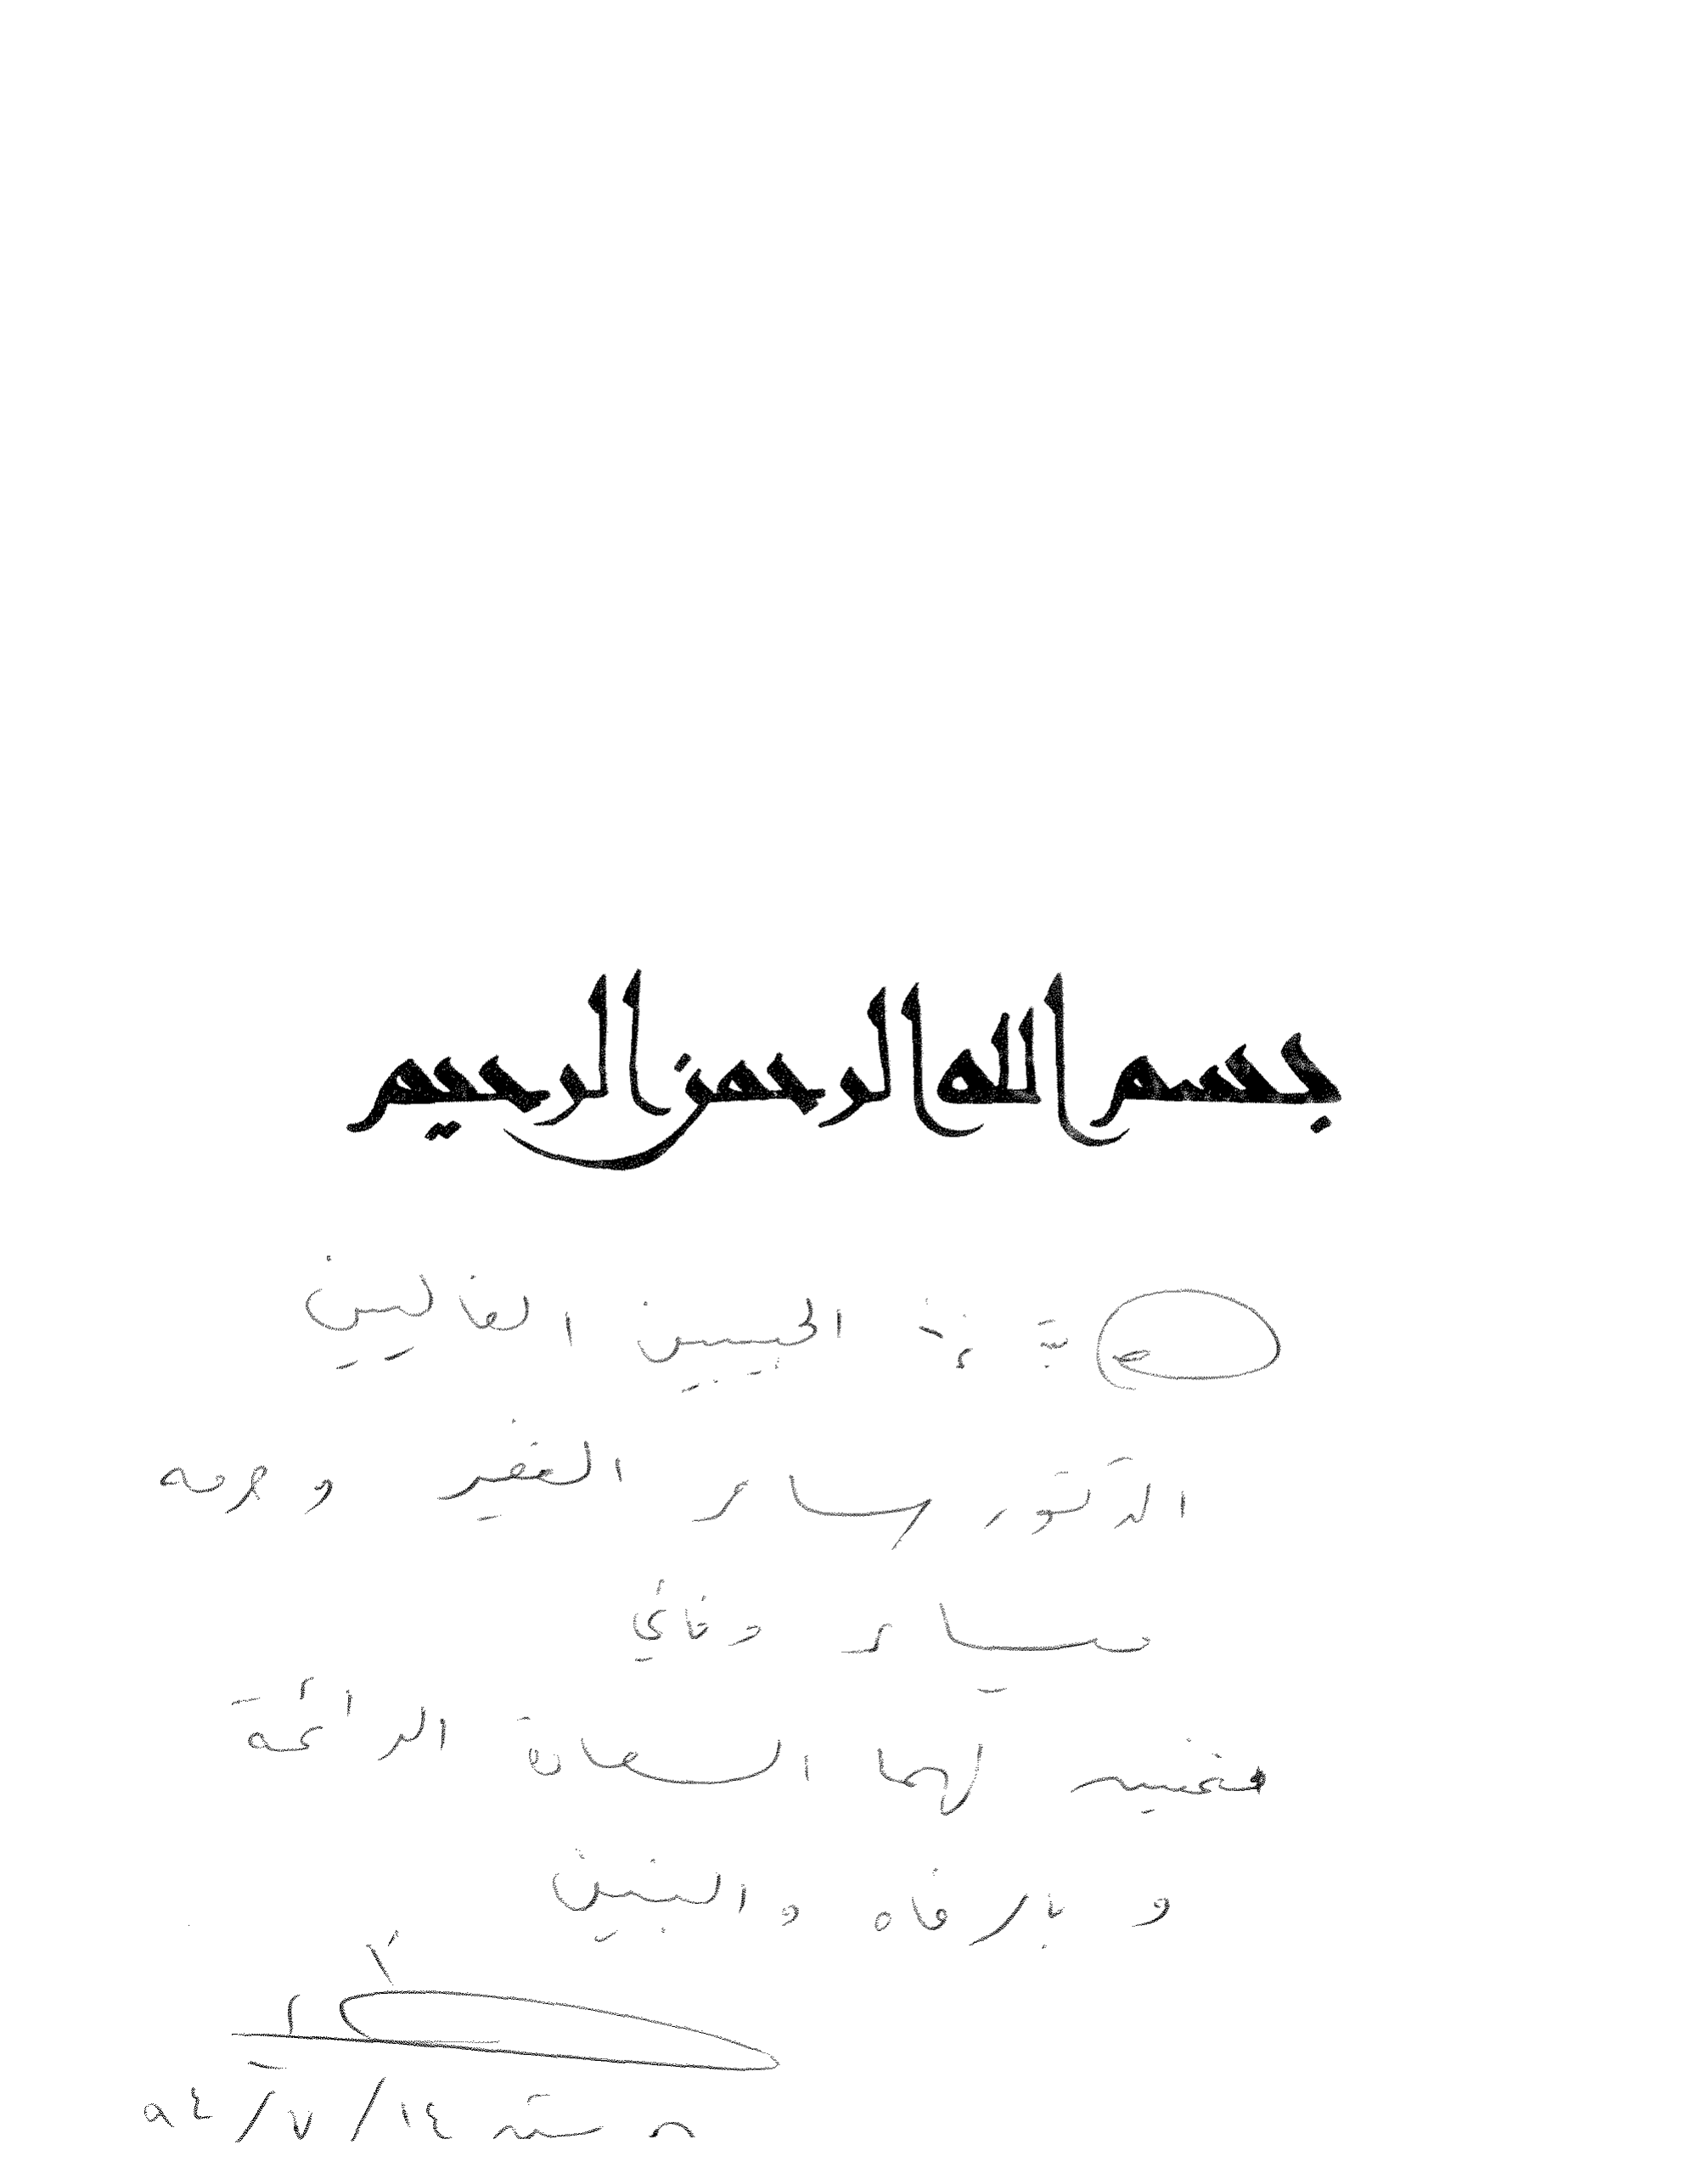 بسم الله الرحمن الرحيم
الحبيبين الغاليين
الدكتور سامر الفقير وحرمه
ميساء وفائي
متمنيه لهما السعادة الدائمة
و بالرفاه والبنين
٩٤/٧/١٤